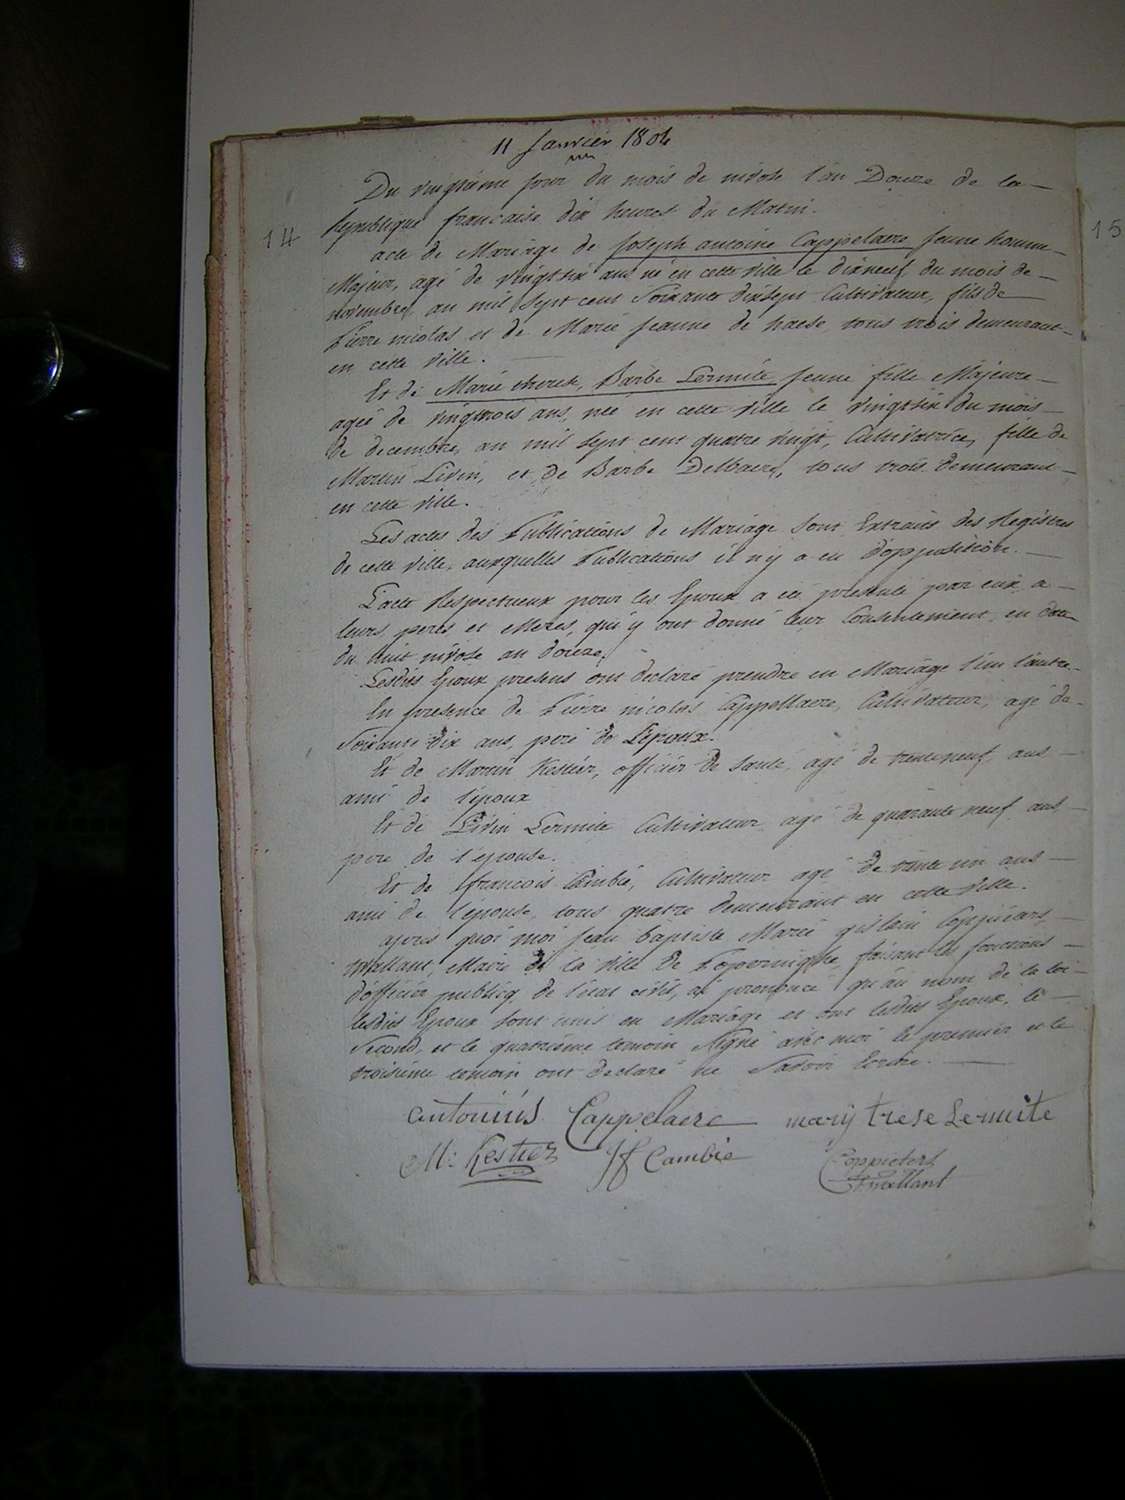 11 Janvier 1804
Du vingtieme jour du mois de nivose l'an Douze de la
Republique francaise dix heures du Matin.
14
15
acte de Mariage de Joseph antoine Cappelaere Jeune homme
Majeur, agé de vingtsix ans né en cette ville le dixneuf du mois de
novembre, an mil sept cent Soixante dixsept Cultivateur, fils de
Pierre nicolas et de Marie Jeanne de haese tous trois demeurant
en cette ville.
Et de Marie therese, Barbe Lermite Jeune fille Majeure
agée de vingttrois ans, née en cette ville le vingtsix du mois
de decembre, an mil sept cent quatre vingt, Cultivatrice, fille de
Martin Livin, et de Barbe Delbaere, tous trois demeurant
en cette ville.
Les actes des Publications de Mariage Sont Extraits des Registres
de cette ville, auxquelles Publications il n'y a eu d'opposition.
L'acte Respectueux pour les Epoux a été presenté par eux a
leurs peres et Meres, qui y ont donné leur Consentement, en date
du huit nivose an douze.
Lesdits Epoux presens ont declaré prendre en Mariage l'un l'autre.
En presence de Pierre nicolas Cappellaere, Cultivateur, agé de
Soixante dix ans, pere de L'epoux.
Et de Martin Kestier, officier de santé, agé de trenteneuf ans
ami de l'époux
Et de Livin Lermite Cultivateur agé de quarante neuf ans,
pere de l'epouse.
Et de francois Cambie, Cultivateur agé de trente un ans
ami de l'épouse, tous quatre demeurant en cette ville.
apres quoi moi Jean baptiste Marie gislain Coppieters,
trvellant, Maire de la ville de Poperinghe, faisant les fonctions
d'officier publicq de l'état civil, ai prononcé qu'au nom de la loi
lesdits Epoux sont unis en Mariage et ont lesdits Epoux, le
Second, et le quatrieme temoin signé avec moi le premier et le
troisieme temoin ont declaré ne Savoir Ecrire.
antonius Cappelaere marij trese Lermite
M: Kestier Jf Cambie Coppieters
trvellant